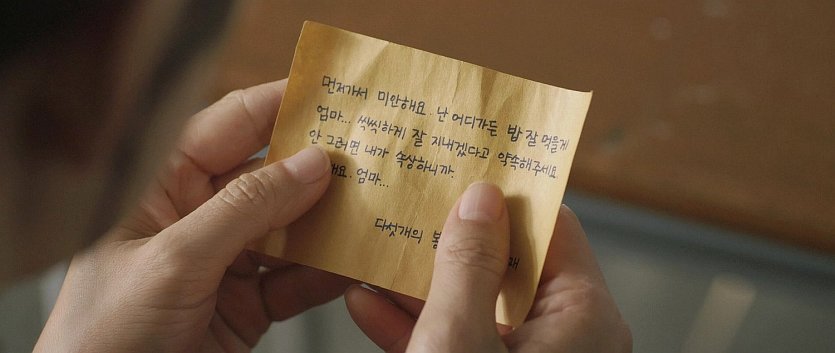 먼저가서 미안해요. 난 어디가든 밥 잘 먹을게
엄마... 씩씩하게 잘 지내겠다고 약속해주세요.
안 그러면 내가 속상하니까.
해요. 엄마...
다섯개의 봉